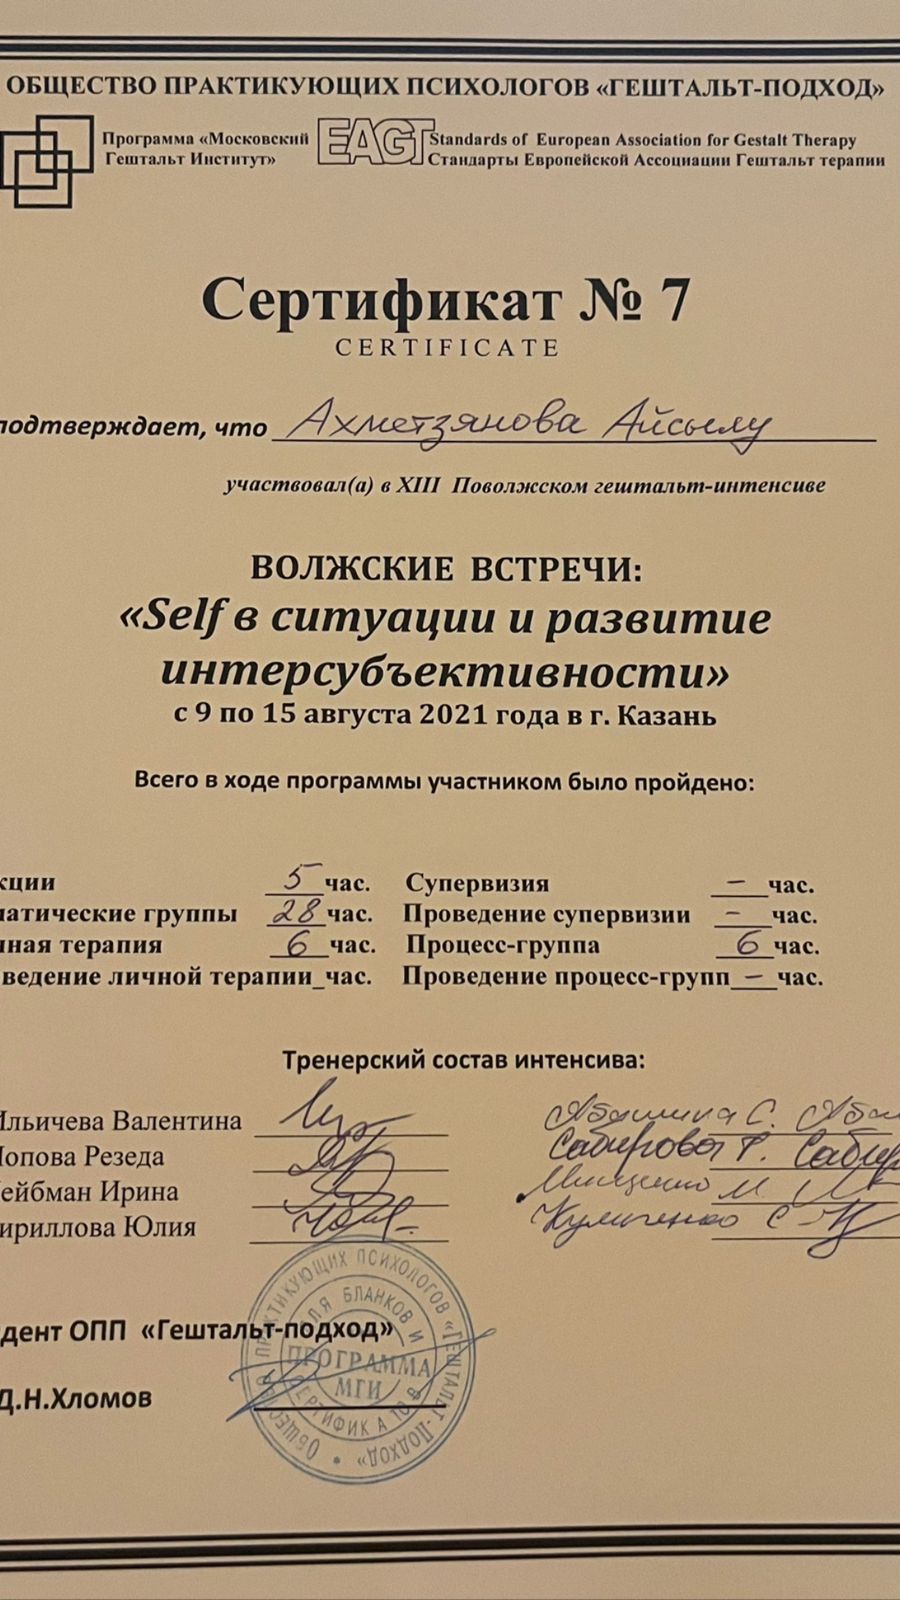 ОБЩЕСТВО ПРАКТИКУЮЩИХ ПСИХОЛОГОВ «ГЕШТАЛЬТ-ПОДХОД»
Программа «Московский Гештальт Институт»
EAGT
Standards of European Association for Gestalt Therapy
Стандарты Европейской Ассоциации Гештальт терапии
Сертификат № 7
CERTIFICATE
подтверждает, что Ахметзянова Айсылу
участвовал(а) в XIII Поволжском гештальт-интенсиве
ВОЛЖСКИЕ ВСТРЕЧИ:
«Self в ситуации и развитие
интерсубъективности»
с 9 по 15 августа 2021 года в г. Казань
Всего в ходе программы участником было пройдено:
кции 5 час. Супервизия – час.
матические группы 28 час. Проведение супервизии – час.
ная терапия 6 час. Процесс-группа 6 час.
ведение личной терапии_час. Проведение процесс-групп – час.
Тренерский состав интенсива:
Ильичева Валентина Абашина С.
Попова Резеда Сабирова Г. Сабир
ейбман Ирина Мищенко М.
ириллова Юлия Кулиненко С.
дент ОПП «Гештальт-подход»
Д.Н.Хломов
ОБЩЕСТВО ПРАКТИКУЮЩИХ ПСИХОЛОГОВ «ГЕШТАЛЬТ-ПОДХОД»
ДЛЯ БЛАНКОВ И СЕРТИФИКАТОВ
ПРОГРАММА
МГИ